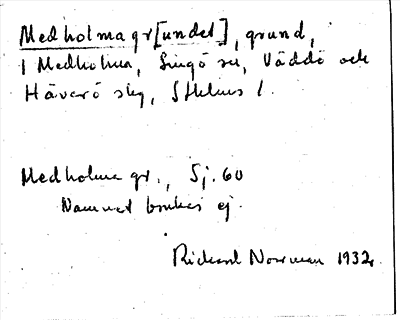 Medholmagr[undet], grund,
/ Medholma, Singö sn, Väddö och
Häverö skg, Sthlms l.
Medholma gr., Sj. 60
Namnet brukas ej.
Rickard Norrman 1932.